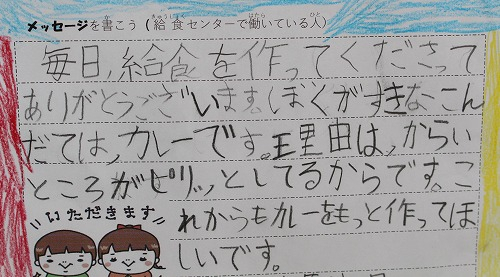 メッセージを書こう（給食センターで働いている人）
毎日,給食を作ってくださって
ありがとうございます。ぼくがすきなこん
だては,カレーです。理由は,からい
ところがピリッとしてるからです。こ
れからもカレーをもっと作ってほ
しいです。
いただきます